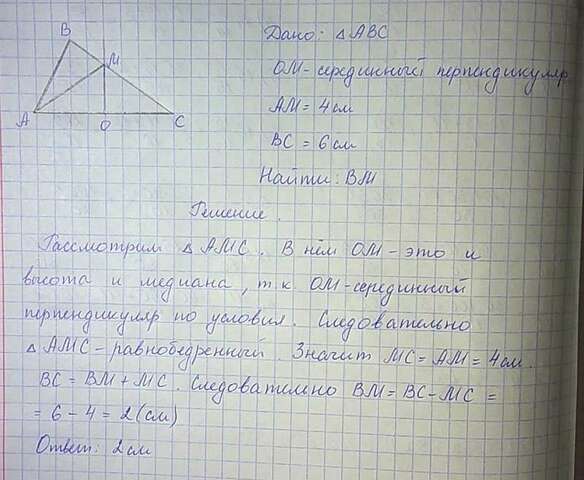 B
M
A
O
C
Дано: △ABC
OM - серединный перпендикуляр
AM = 4 см
BC = 6 см
Найти: BM
Решение.
Рассмотрим △ AMC. В нём OM - это и
высота и медиана, т.к OM-серединный
перпендикуляр по условия. Следовательно
△ AMC - равнобедренный. Значит MC = AM = 4 см.
BC = BM + MC. Следовательно BM = BC - MC =
= 6 - 4 = 2 (см)
Ответ: 2 см